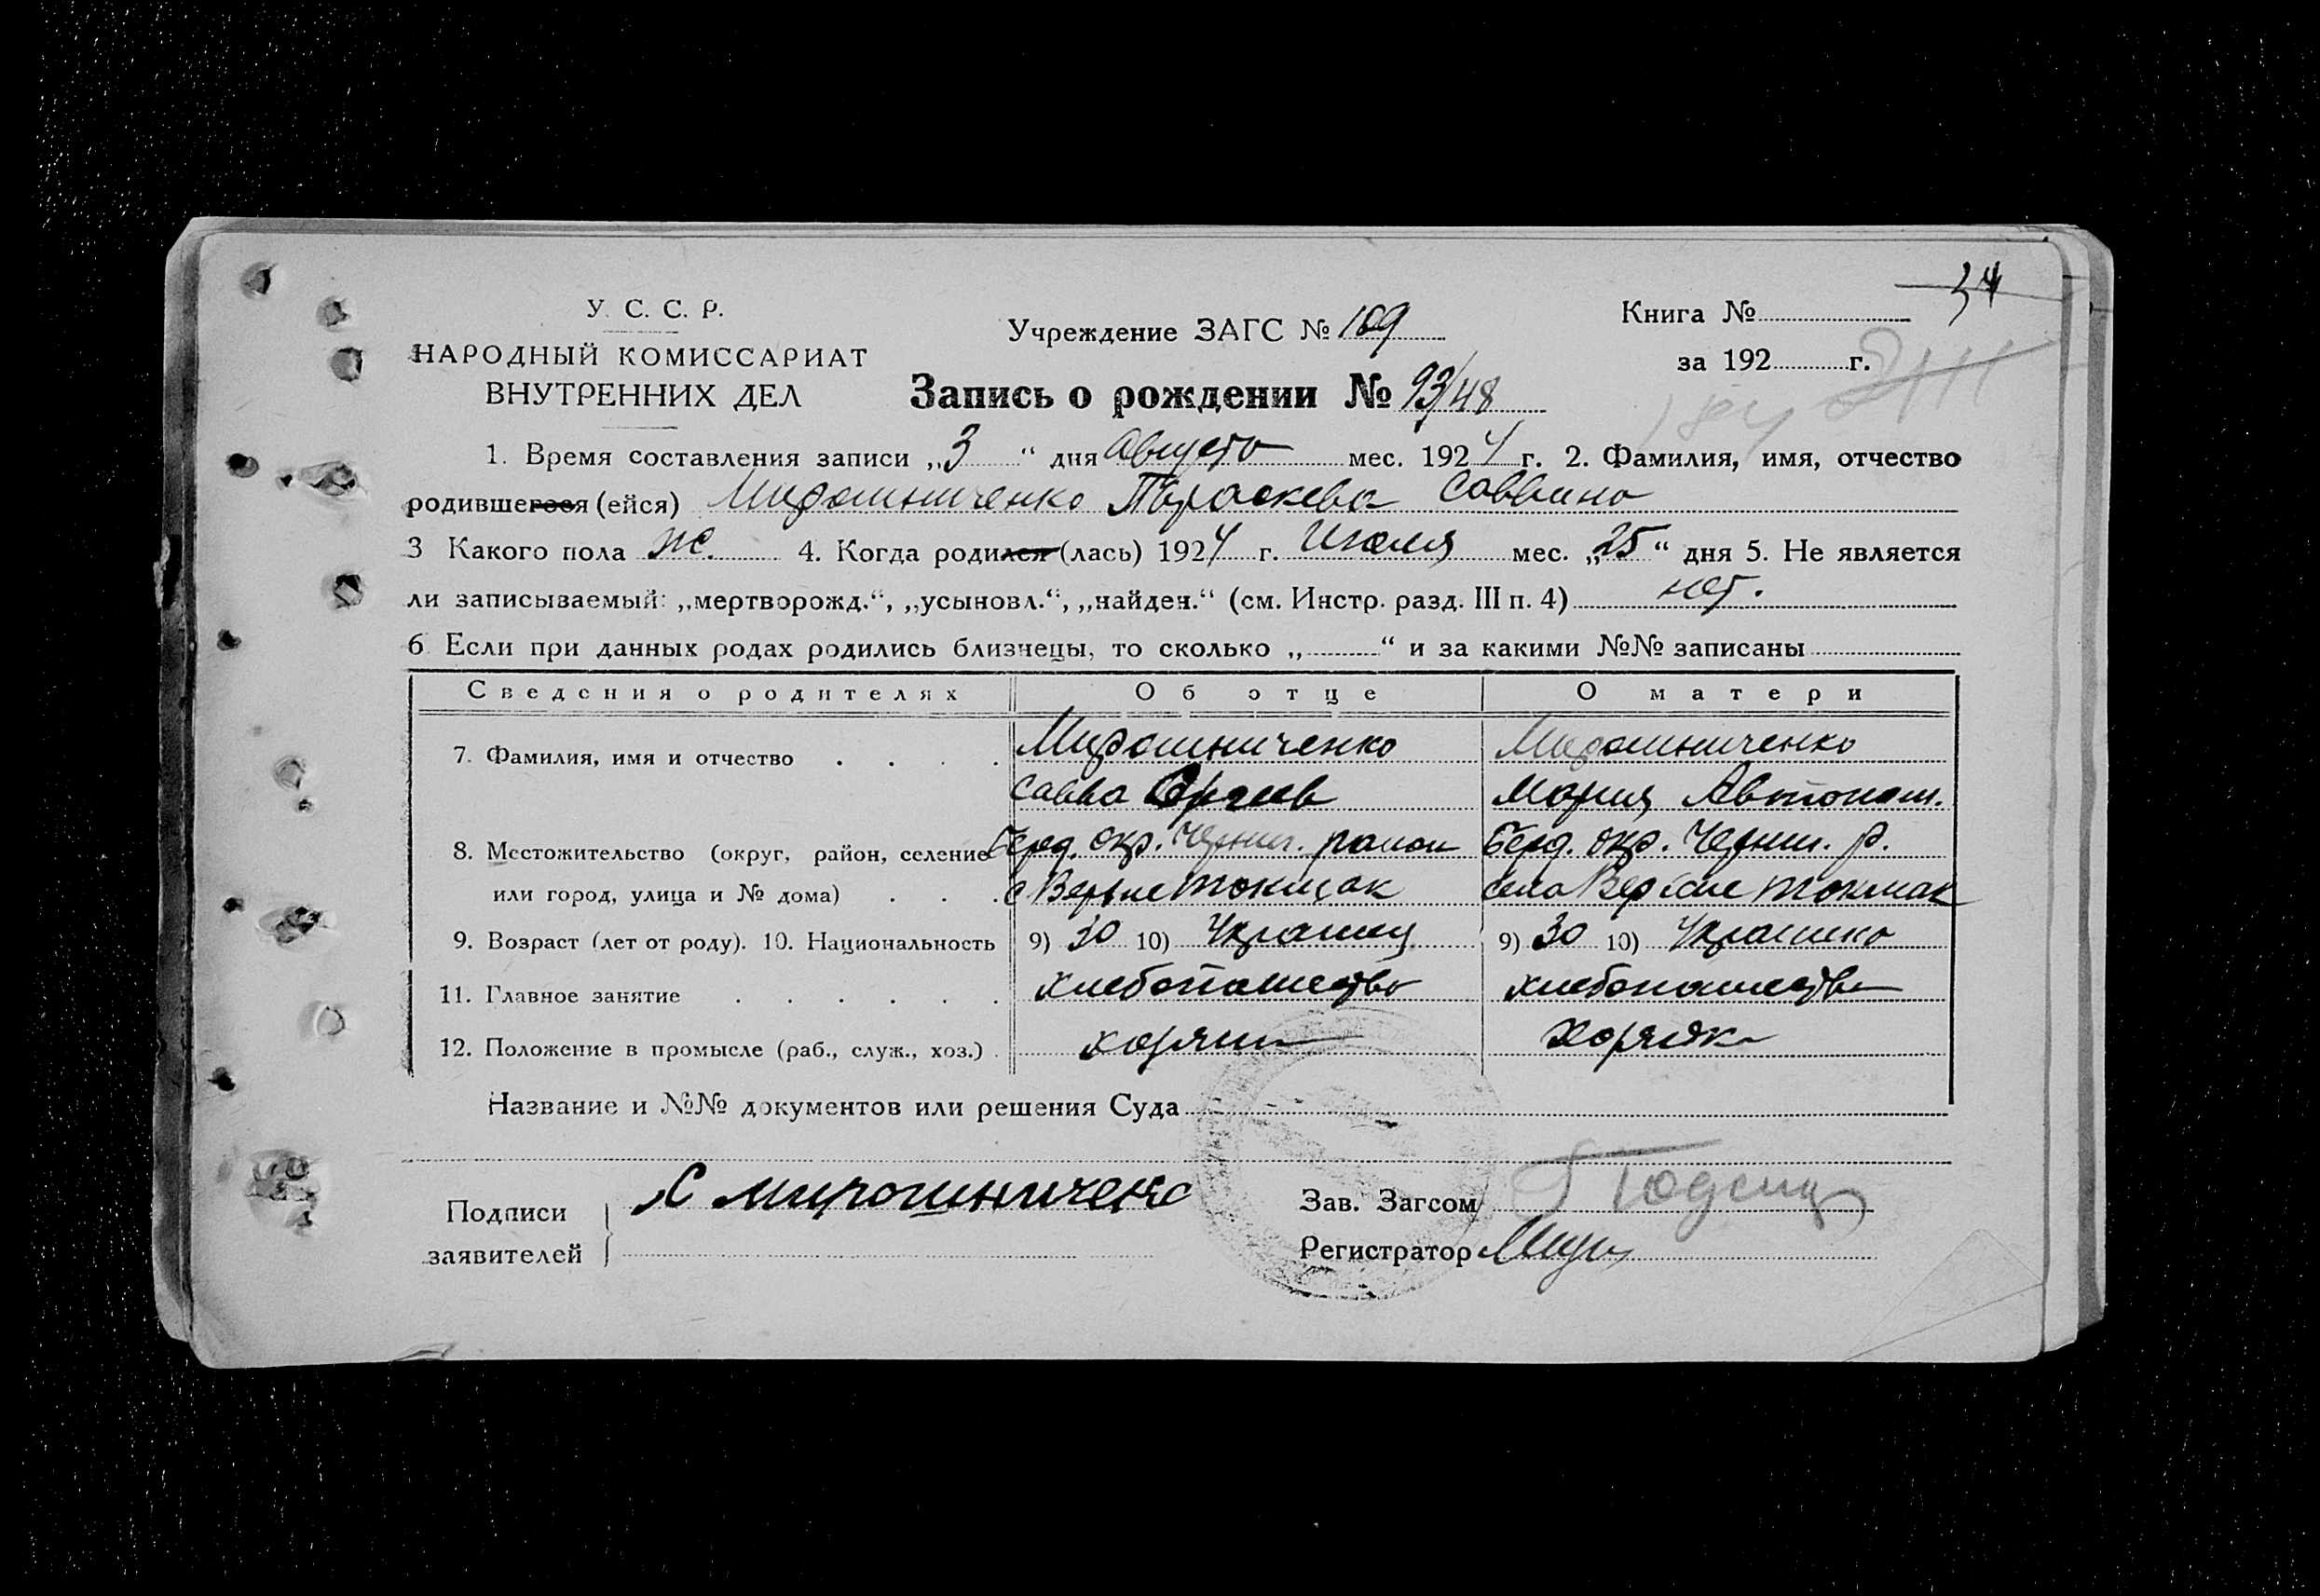 34
У. С. С. Р.
НАРОДНЫЙ КОМИССАРИАТ
ВНУТРЕННИХ ДЕЛ
Учреждение ЗАГС № 109
Книга №
за 192 г.
Запись о рождении № 93/48
1. Время составления записи „3“ дня Августа мес. 1924 г. 2. Фамилия, имя, отчество
родившегося (ейся) Мирошниченко Параскева Саввина
3 Какого пола ж. 4. Когда родился (лась) 1924 г. Июля мес. „25“ дня 5. Не является
ли записываемый: „мертворожд.“, „усыновл.“, „найден.“ (см. Инстр. разд. III п. 4) нет.
6 Если при данных родах родились близнецы, то сколько „ “ и за какими №№ записаны
Сведения о родителях Об отце О матери
7. Фамилия, имя и отчество Мирошниченко Мирошниченко
Савва Мария Автоном.
8. Местожительство (округ, район, селение Берд. окр. Черниг. район Берд. окр. Черниг. р.
или город, улица и № дома) с Верхне Токмак село Верхне Токмак
9. Возраст (лет от роду). 10. Национальность 9) 30 10) Украинец 9) 30 10) Украинка
11. Главное занятие хлебопашество хлебопашество
12. Положение в промысле (раб., служ., хоз.)
Название и №№ документов или решения Суда
Подписи
заявителей
С мирошниченко
Зав. Загсом
Регистратор